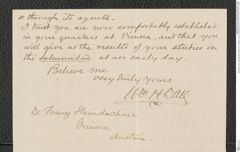 through its agents.
I trust you are now comfortably established
in your quarters at Vienna, and that you
will give us the results of your studies on
the Salmonidae at an early day.
Believe me
very truly yours
Wm H Dall
Dr. Franz Steindachner
Vienna
Austria.